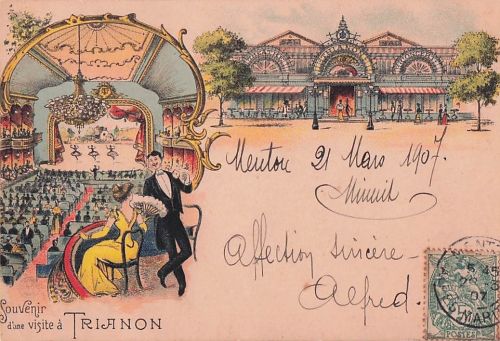 Menton 21 Mars 1907.
Minuit
Affection sincère -
Alfred.
Souvenir
d'une visite à TRIANON
POSTES